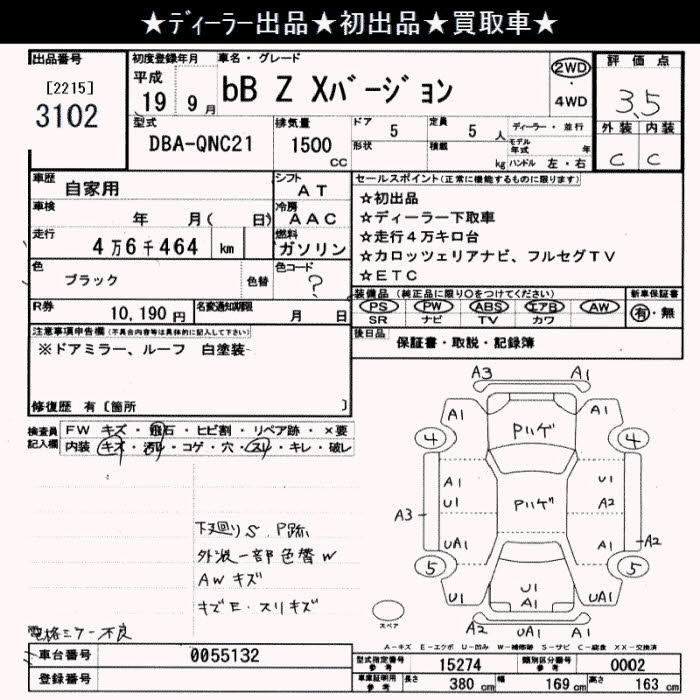 ★ディーラー出品★初出品★買取車★
出品番号
[2215]
3102
初度登録年月
平成
19 9 月
車名・グレード
bB Z Xバージョン
2WD
・
4WD
評価点
3.5
外装 内装
C C
型式
DBA-QNC21
排気量
1500
CC
ドア 5
定員 5 人
形状
積載 kg
ディーラー・並行
モデル年式 年
ハンドル 左・右
車歴 自家用
シフト
AT
車検 年 月( 日)
冷房
AAC
走行 4万6千464 km
燃料
ガソリン
色 ブラック 色替
色コード
?
R券 10,190円
名変通知期限
月 日
セールスポイント(正常に機能するものに限ります)
☆初出品
☆ディーラー下取車
☆走行4万キロ台
☆カロッツェリアナビ、フルセグTV
☆ETC
装備品 (純正品に限り○をつけてください)
PS PW ABS エアB AW
SR ナビ TV カワ
新車保証書
有・無
後日品
保証書・取説・記録簿
注意事項申告欄(不具合内容等は具体的に記入して下さい)
※ドアミラー、ルーフ 白塗装
修復歴 有〔箇所 〕
検査員
記入欄
FW キズ・飛石・ヒビ割・リペア跡・×要
内装 キズ・汚れ・コゲ・穴・スレ・キレ・破レ
下廻りS P跡
外装一部色替W
AWキズ
キズE・スリキズ
電格ミラー不良
A3 A1
A1 A1
4 4
Pハゲ
A1 U1
U1 Pハゲ A2
A3
UA1 UA1 A2
5 5
U1
U1 A1 UA1
A2 UA1 A1
スペア
A-キズ E-エクボ U-凹み W-補修跡 S-サビ C-腐食 XX-交換済
車台番号 0055132
登録番号
型式指定番号
参考
15274
類別区分番号
参考
0002
車庫証明用
参考
長さ 380 cm 幅 169 cm 高さ 163 cm